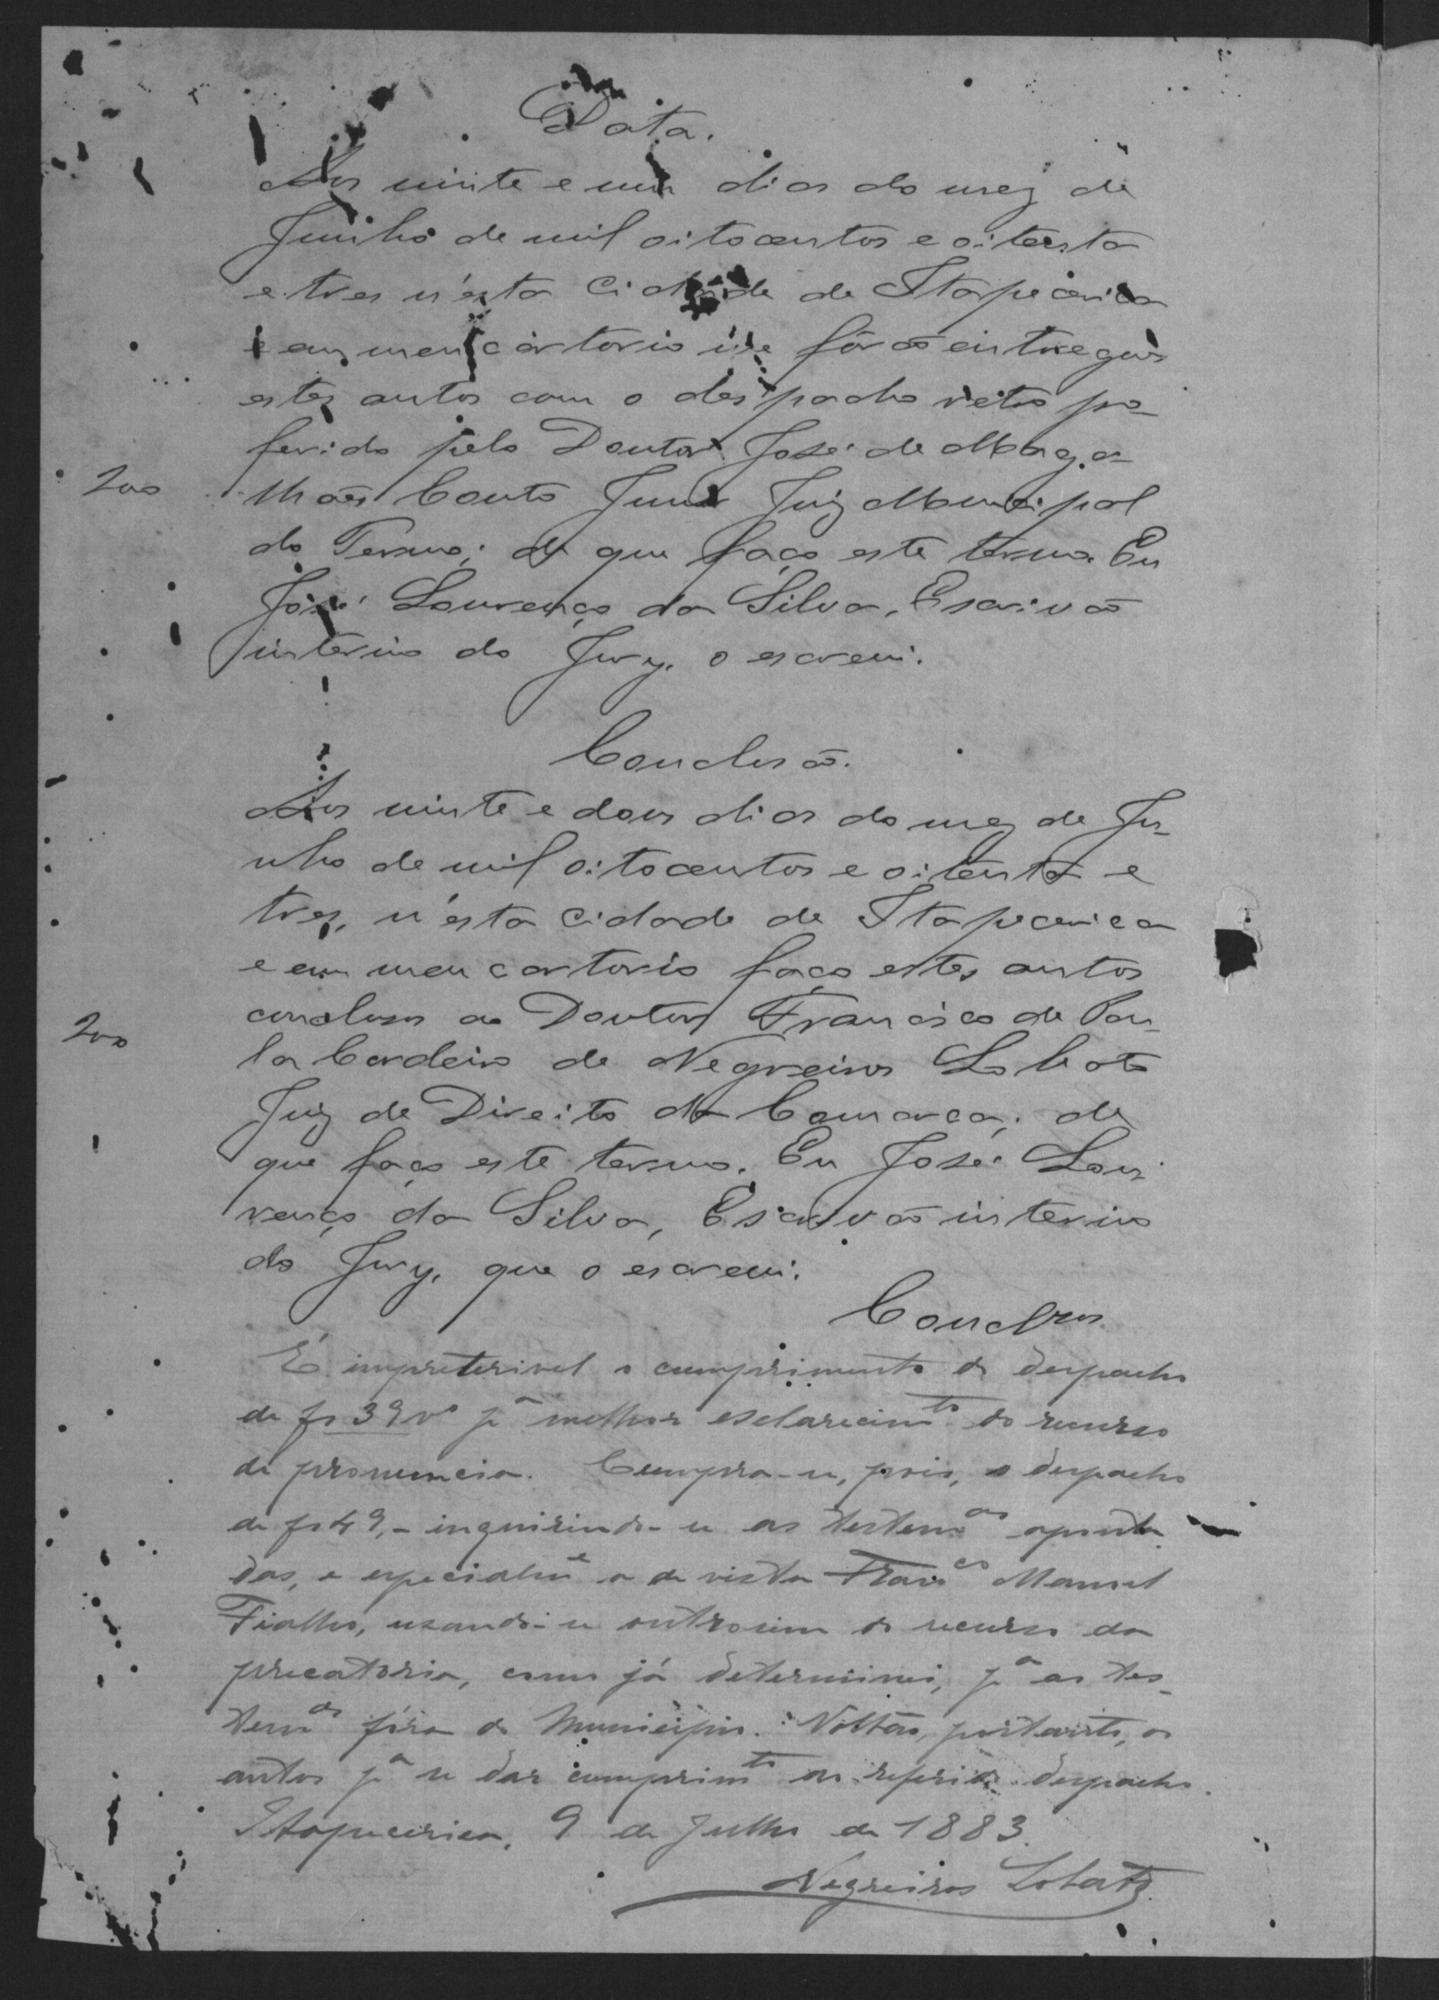 Data.
Aos vinte e um dias do mez de
Junho de mil oitocentos e oitenta
e tres n'esta Cidade de Itapecerica
e em meu cartorio me fôrão entregues
estes autos com o despacho retro pro-
ferido pelo Doutor José de Maga-
200
lhães Couto Junr Juiz Municipal
do Termo; de que faço este termo. Eu
José Lourenço da Silva, Escrivão
interino do Jury, o escrevi.
Conclusão.
Aos vinte e dous dias do mez de Ju-
nho de mil oitocentos e oitenta e
tres, n'esta Cidade de Itapecerica
e em meu cartorio faço estes autos
conclusos ao Doutor Francisco de Pau-
200
la Cordeiro de Negreiros Lobato
Juiz de Direito da Comarca; de
que faço este termo. Eu José Lou-
renço da Silva, Escrivão interino
do Jury, que o escrevi.
Concl.zos
É impreterivel o cumprimento do despacho
de fs 39 vº pª melhor esclarecimto do recurso
de pronuncia. Cumpra-se, pois, o despacho
de fs 49, - inquirindo-se as testemas aponta-
das, e especialme a de vista Franco Manoel
Fialho, usando-se outrosim do recurso da
precatoria, como já determinei, pª as tes-
temas fóra do Municipio. Voltão, portanto, os
autos pª se dar cumprimto ao referido despacho.
Itapecerica, 9 de Julho de 1883.
Negreiros Lobato